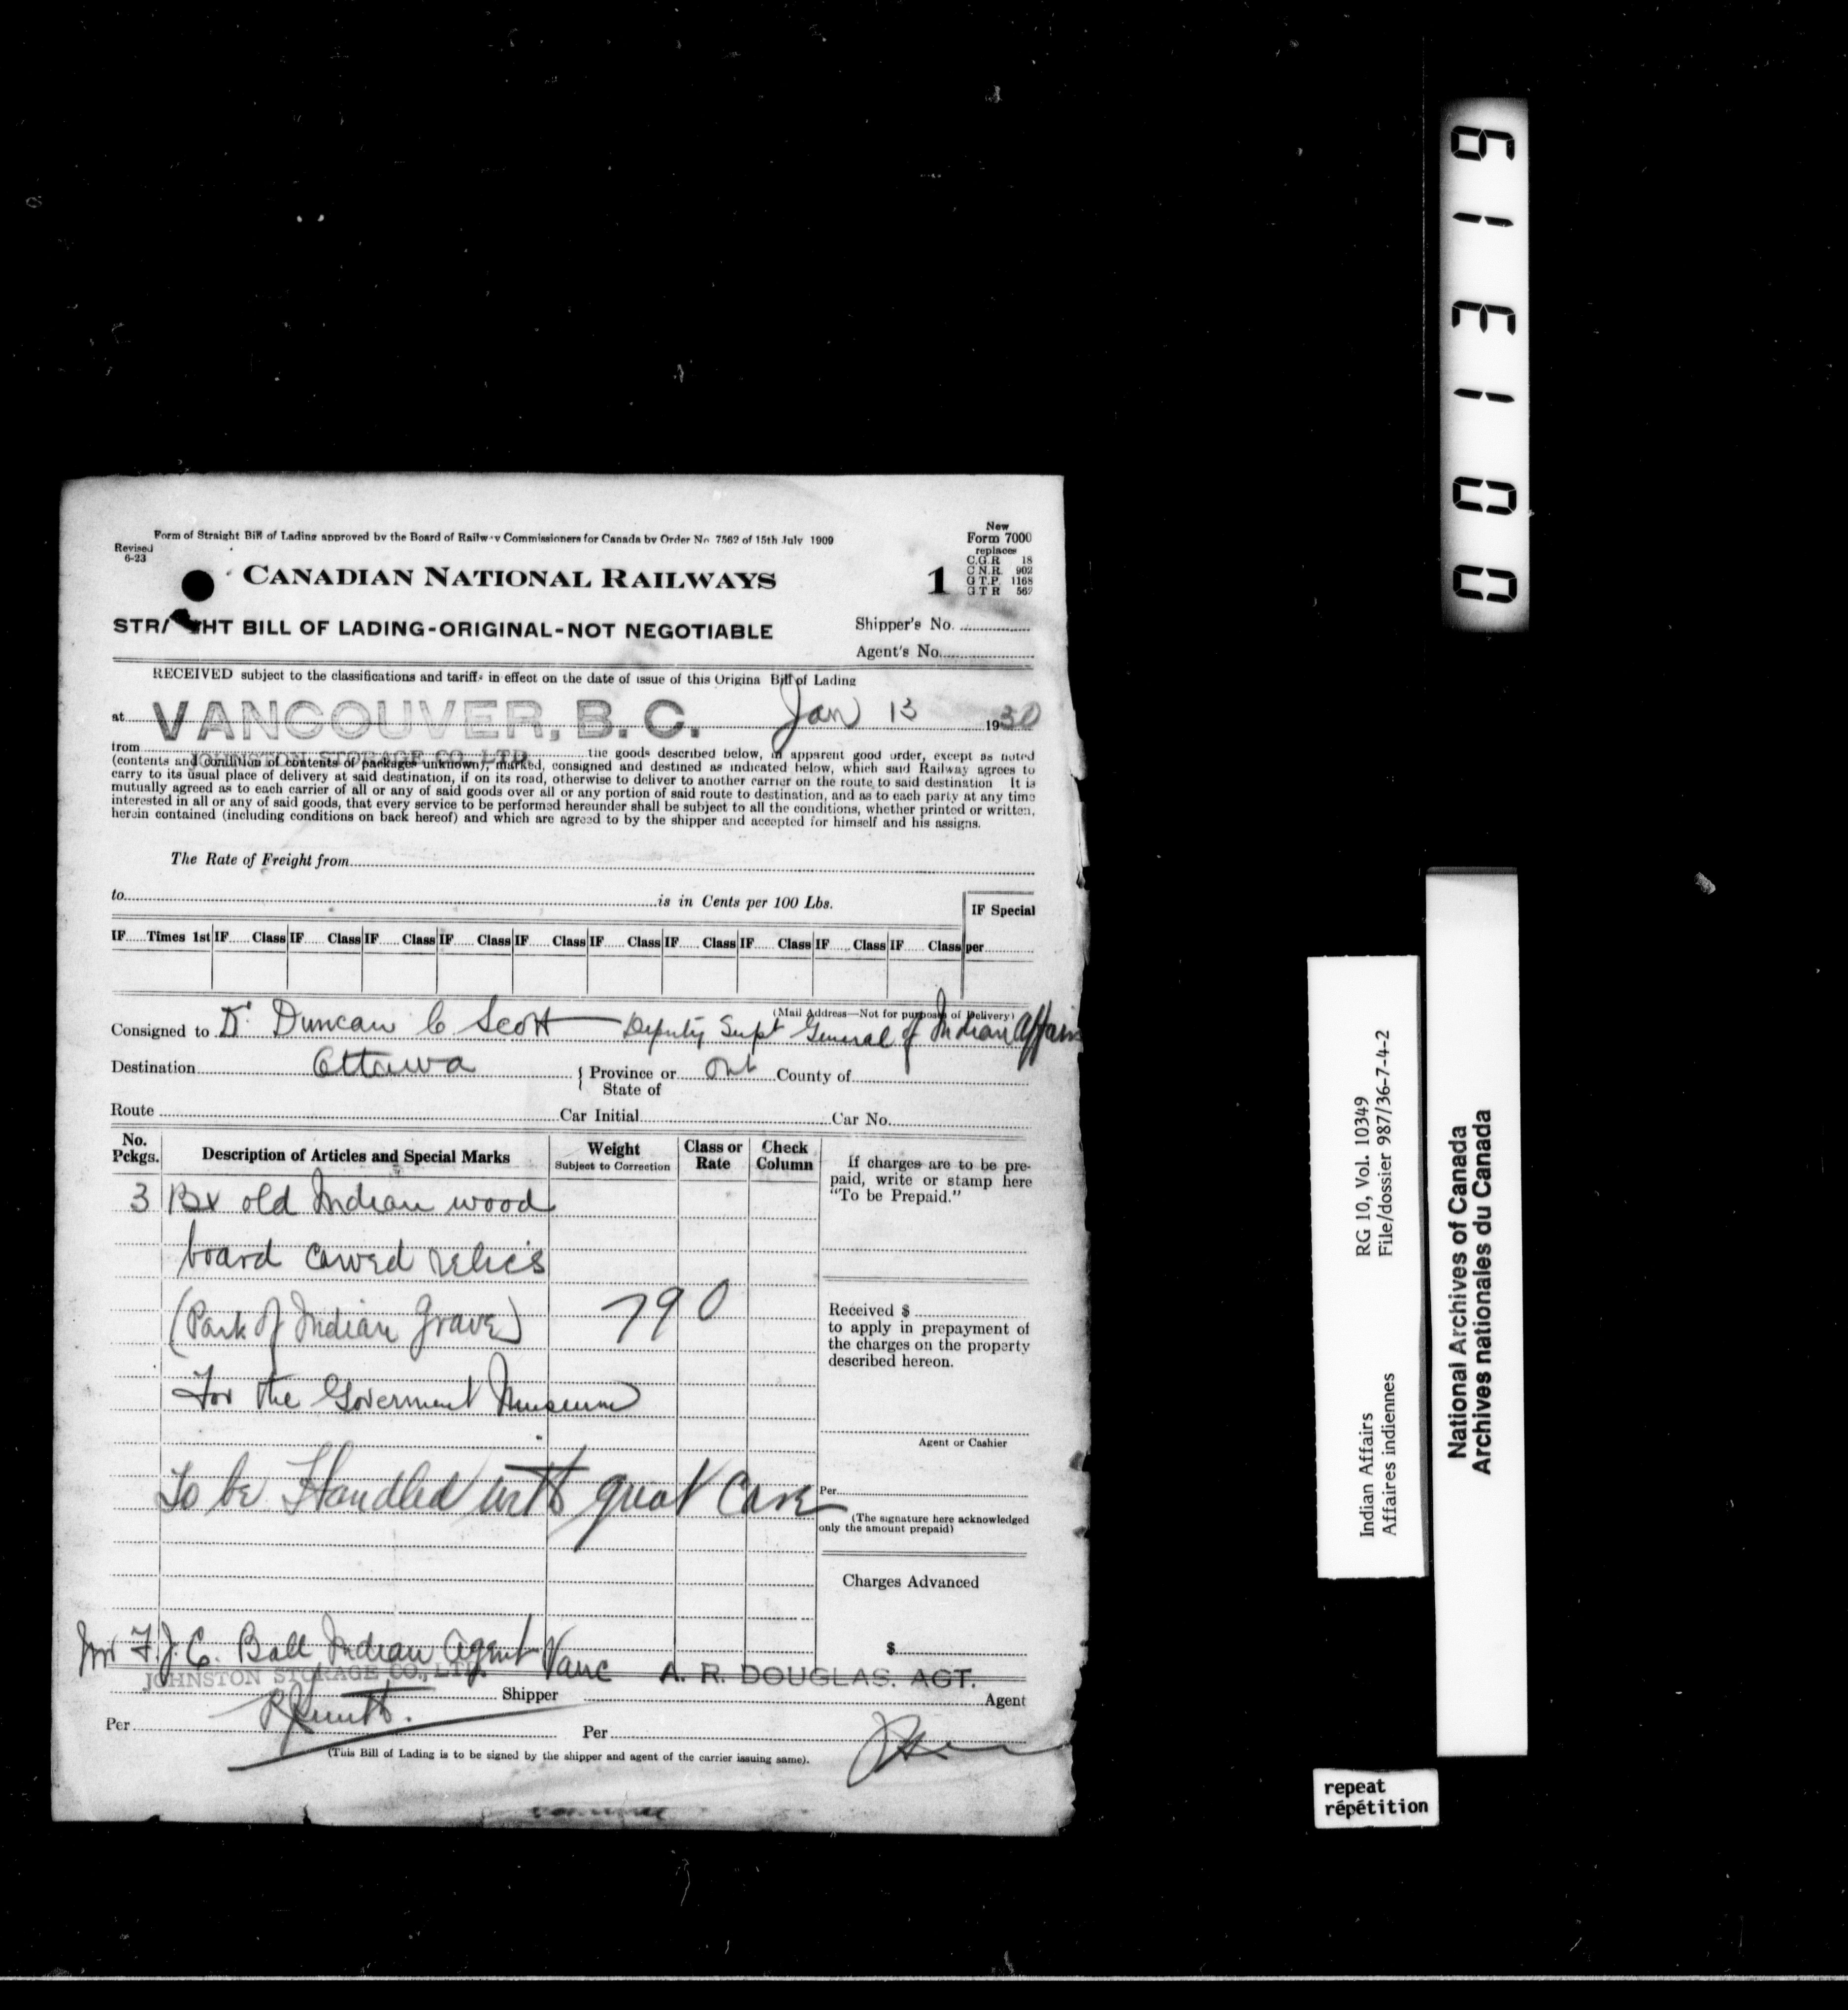 Form of Straight Bill of Lading approved by the Board of Railway Commissioners for Canada by Order No. 7562 of 15th July 1909
Revised
6-23
New
Form 7000
replaces
C.G.R. 18
C.N.R. 902
G.T.P. 1168
G.T.R. 562
CANADIAN NATIONAL RAILWAYS
1
STRAIGHT BILL OF LADING-ORIGINAL-NOT NEGOTIABLE
Shipper's No.
Agent's No.
RECEIVED subject to the classifications and tariffs in effect on the date of issue of this Original Bill of Lading
at VANCOUVER, B. C. Jan 13 1930
from JOHNSTON STORAGE CO., LTD. the goods described below, in apparent good order, except as noted
(contents and condition of contents of packages unknown), marked, consigned and destined as indicated below, which said Railway agrees to
carry to its usual place of delivery at said destination, if on its road, otherwise to deliver to another carrier on the route to said destination It is
mutually agreed as to each carrier of all or any of said goods over all or any portion of said route to destination, and as to each party at any time
interested in all or any of said goods, that every service to be performed hereunder shall be subject to all the conditions, whether printed or written,
herein contained (including conditions on back hereof) and which are agreed to by the shipper and accepted for himself and his assigns.
The Rate of Freight from
to is in Cents per 100 Lbs.
IF Special
IF Times 1st IF Class IF Class IF Class IF Class IF Class IF Class IF Class IF Class IF Class IF Class per
(Mail Address—Not for purposes of Delivery)
Consigned to Dr Duncan C Scott — Deputy Supt General of Indian Affairs
Destination Ottawa { Province or State of Ont County of
Route Car Initial Car No.
No. Pckgs. Description of Articles and Special Marks Weight Subject to Correction Class or Rate Check Column
If charges are to be pre-
paid, write or stamp here
"To be Prepaid."
3 Bx old Indian wood
board carved relics
(Park of Indian Grave) 790
For the Goverment Museum
To be Handled with great Care
Received $
to apply in prepayment of
the charges on the property
described hereon.
Agent or Cashier
Per
(The signature here acknowledged
only the amount prepaid)
Charges Advanced
$
Mr F. J. C. Ball Indian Agent Vanc
JOHNSTON STORAGE CO., LTD. Shipper A. R. DOUGLAS. AGT. Agent
Per Per
(This Bill of Lading is to be signed by the shipper and agent of the carrier issuing same).
001319
Indian Affairs RG 10, Vol. 10349
Affaires indiennes File/dossier 987/36-7-4-2
National Archives of Canada
Archives nationales du Canada
repeat
répétition